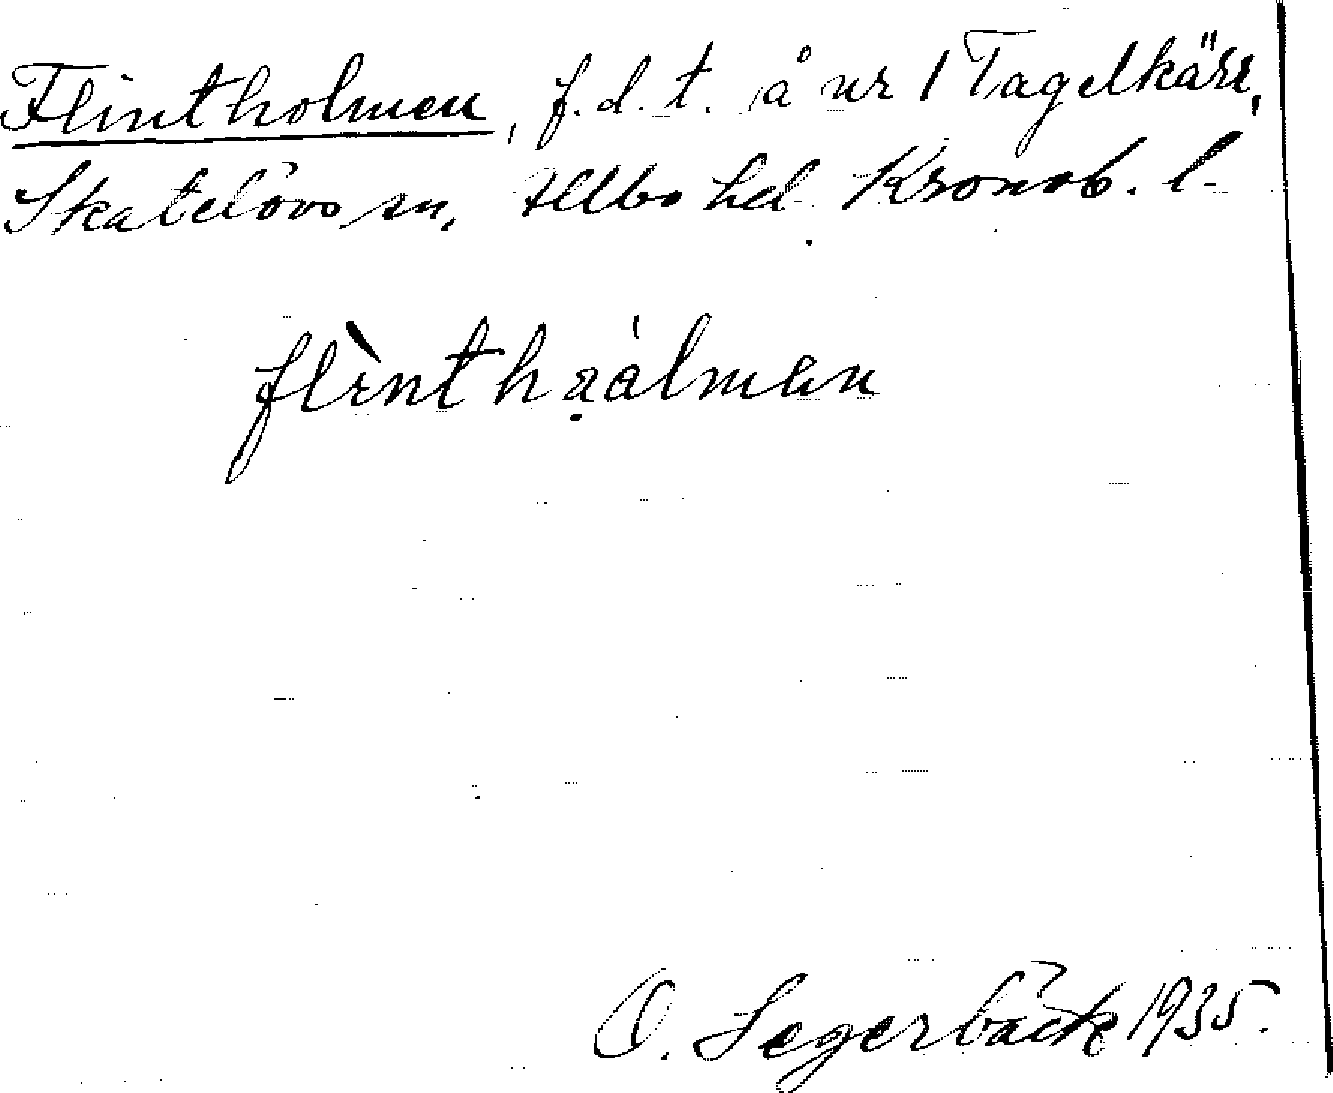 Flintholmen, f.d.t. å nr 1 Tagelkärr,
Skatelövs sn, Allbo hd. Kronob. l.
O. Segerbäck 1935.